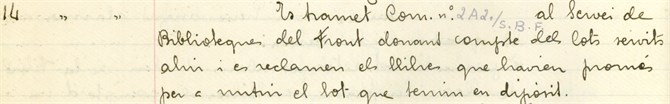 14 " " Es tramet Com. nº. 2A2./S.B.F. al Servei de
Biblioteques del Front donant compte dels lots servits
ahir i es reclamen els llibres que havien promés
per a nutrir el lot que tenim en dipòsit.